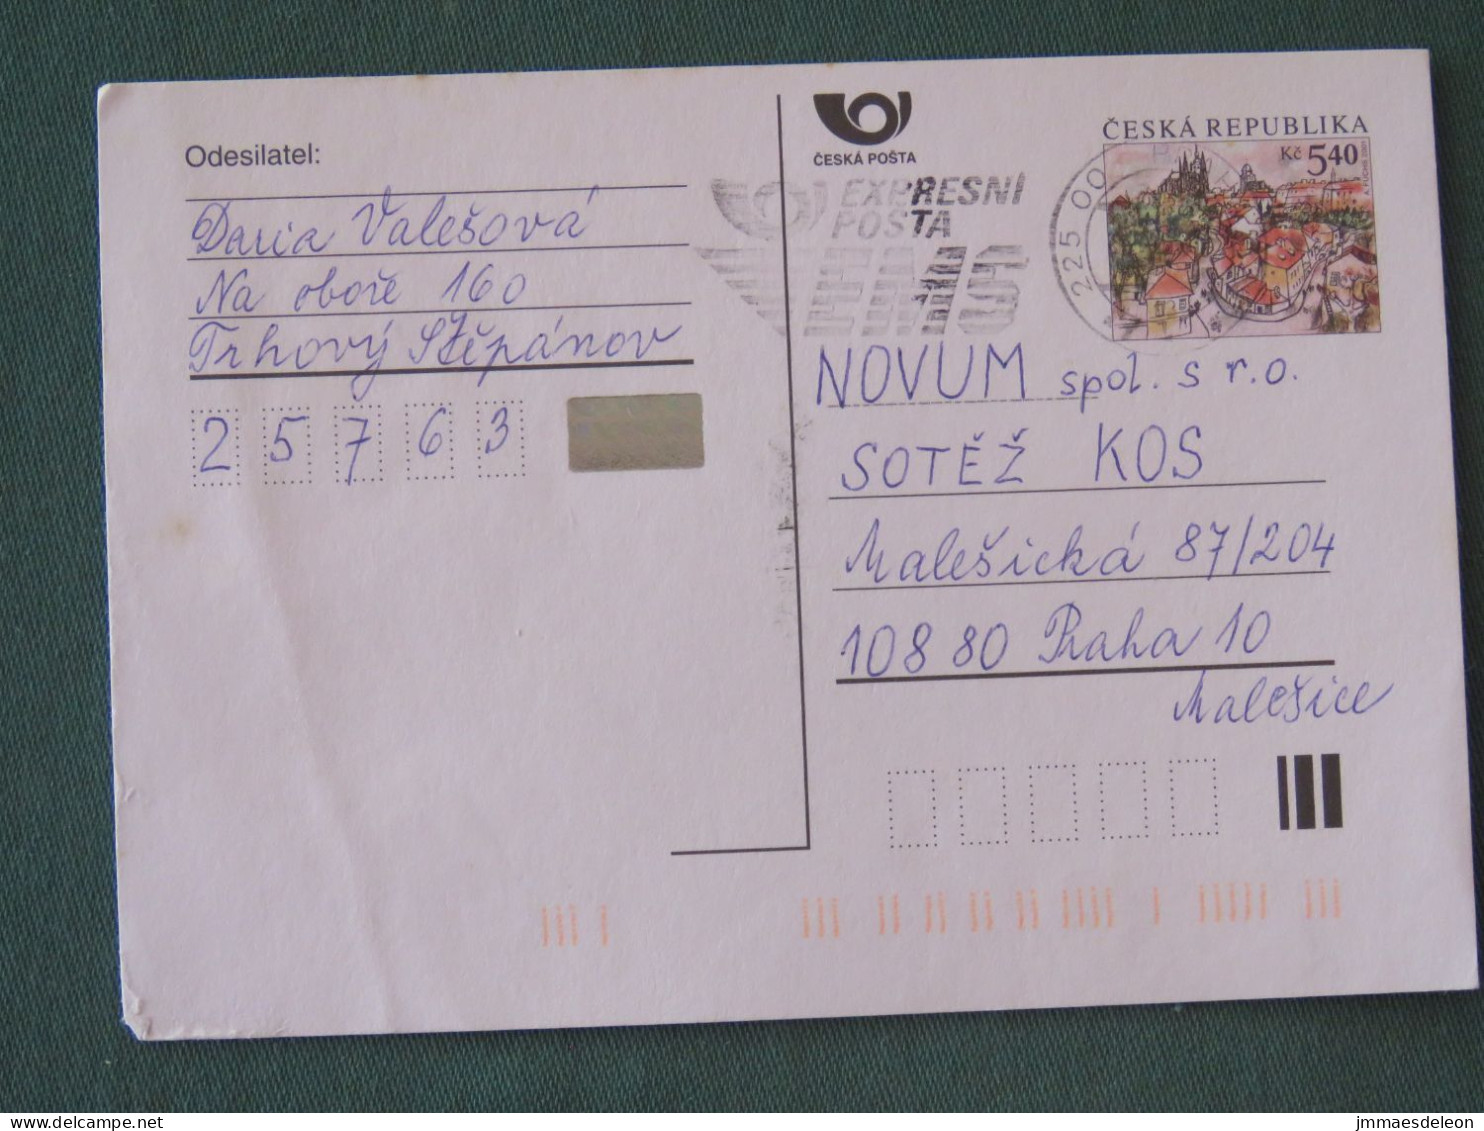 Odesilatel:
Daria Valešová
Na oboře 160
Trhový Štěpánov
2 5 7 6 3
ČESKÁ POŠTA
ČESKÁ REPUBLIKA
Kč 5,40
EXPRESNÍ
POŠTA
EMS
225 00
NOVUM spol. s r.o.
SOTĚŽ KOS
Malešická 87/204
108 80 Praha 10
Malešice
www.delcampe.net
jmmaesdeleon